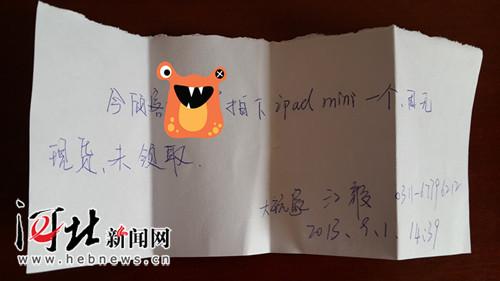 今顾客 拍下 ipad mini 一个,因无
现货,未领取.
大玩家 江毅 0311-67796212
2013.9.1. 14:39
河北新闻网
www.hebnews.cn